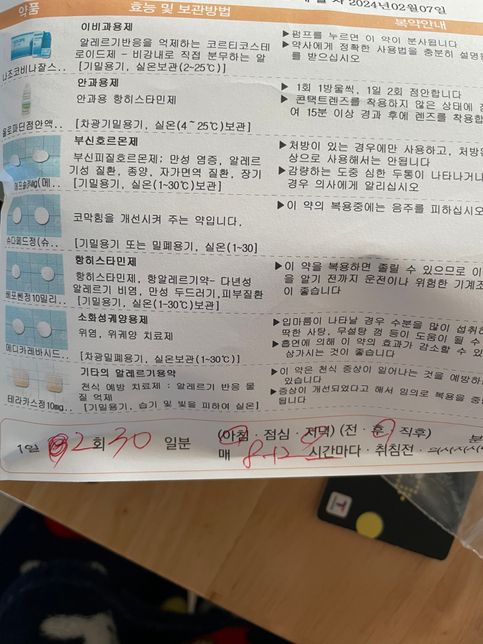 약품
효능 및 보관방법
2024년02월07일
복약안내
이비과용제
알레르기반응을 억제하는 코르티코스테
로이드제 - 비강내로 직접 분무하는 알
[기밀용기, 실온보관(2-25℃)]
나조코비나잘스..
▶펌프를 누르면 이 약이 분사됩니다
▶약사에게 정확한 사용법을 충분히 설명
를 받으십시오
안과용제
안과용 항히스타민제
[차광기밀용기, 실온(4~25℃)보관]
올로파딘점안액..
▶ 1회 1방울씩, 1일 2회 점안합니다
▶ 콘택트렌즈를 착용하지 않은 상태에
여 15분 이상 경과 후에 렌즈를 착용합
부신호르몬제
부신피질호르몬제: 만성 염증, 알레르
기성 질환, 종양, 자가면역 질환, 장기
[기밀용기, 실온(1-30℃)보관]
▶처방이 있는 경우에만 사용하고, 처방된
상으로 사용해서는 안됩니다
▶감량하는 도중 심한 두통이 나타나거나
경우 의사에게 알리십시오
코막힘을 개선시켜 주는 약입니다.
[기밀용기 또는 밀폐용기, 실온(1-30]
슈다폐드정(슈..
▶이 약의 복용중에는 음주를 피하십시오
항히스타민제
항히스타민제, 항알레르기약- 다년성
알레르기 비염, 만성 두드러기,피부질환
[기밀용기, 실온(1-30℃)보관]
베포벤정10밀리..
▶이 약을 복용하면 졸릴 수 있으므로 이
을 알기 전까지 운전이나 위험한 기계조
이 좋습니다
소화성궤양용제
위염, 위궤양 치료제
[차광밀폐용기, 실온보관(1-30℃)]
메디카레바시드..
▶입마름이 나타날 경우 수분을 많이 섭취하
딱딱한 사탕, 무설탕 껌 등이 도움이 될 수
▶흡연에 의해 이 약의 효과가 감소할 수 있
삼가시는 것이 좋습니다
기타의 알레르기용약
천식 예방 치료제 : 알레르기 반응 물
질 억제
[기밀용기, 습기 및 빛을 피하여 실온]
테라카스정10mg..
▶이 약은 천식 증상이 일어나는 것을 예방하
있습니다
▶증상이 개선되었다고 해서 임의로 복용을 중
됩니다
1일 2회 30 일분
(아침 · 점심 · 저녁) (전 · 후 · 직후)
매 시간마다 · 취침전 ·